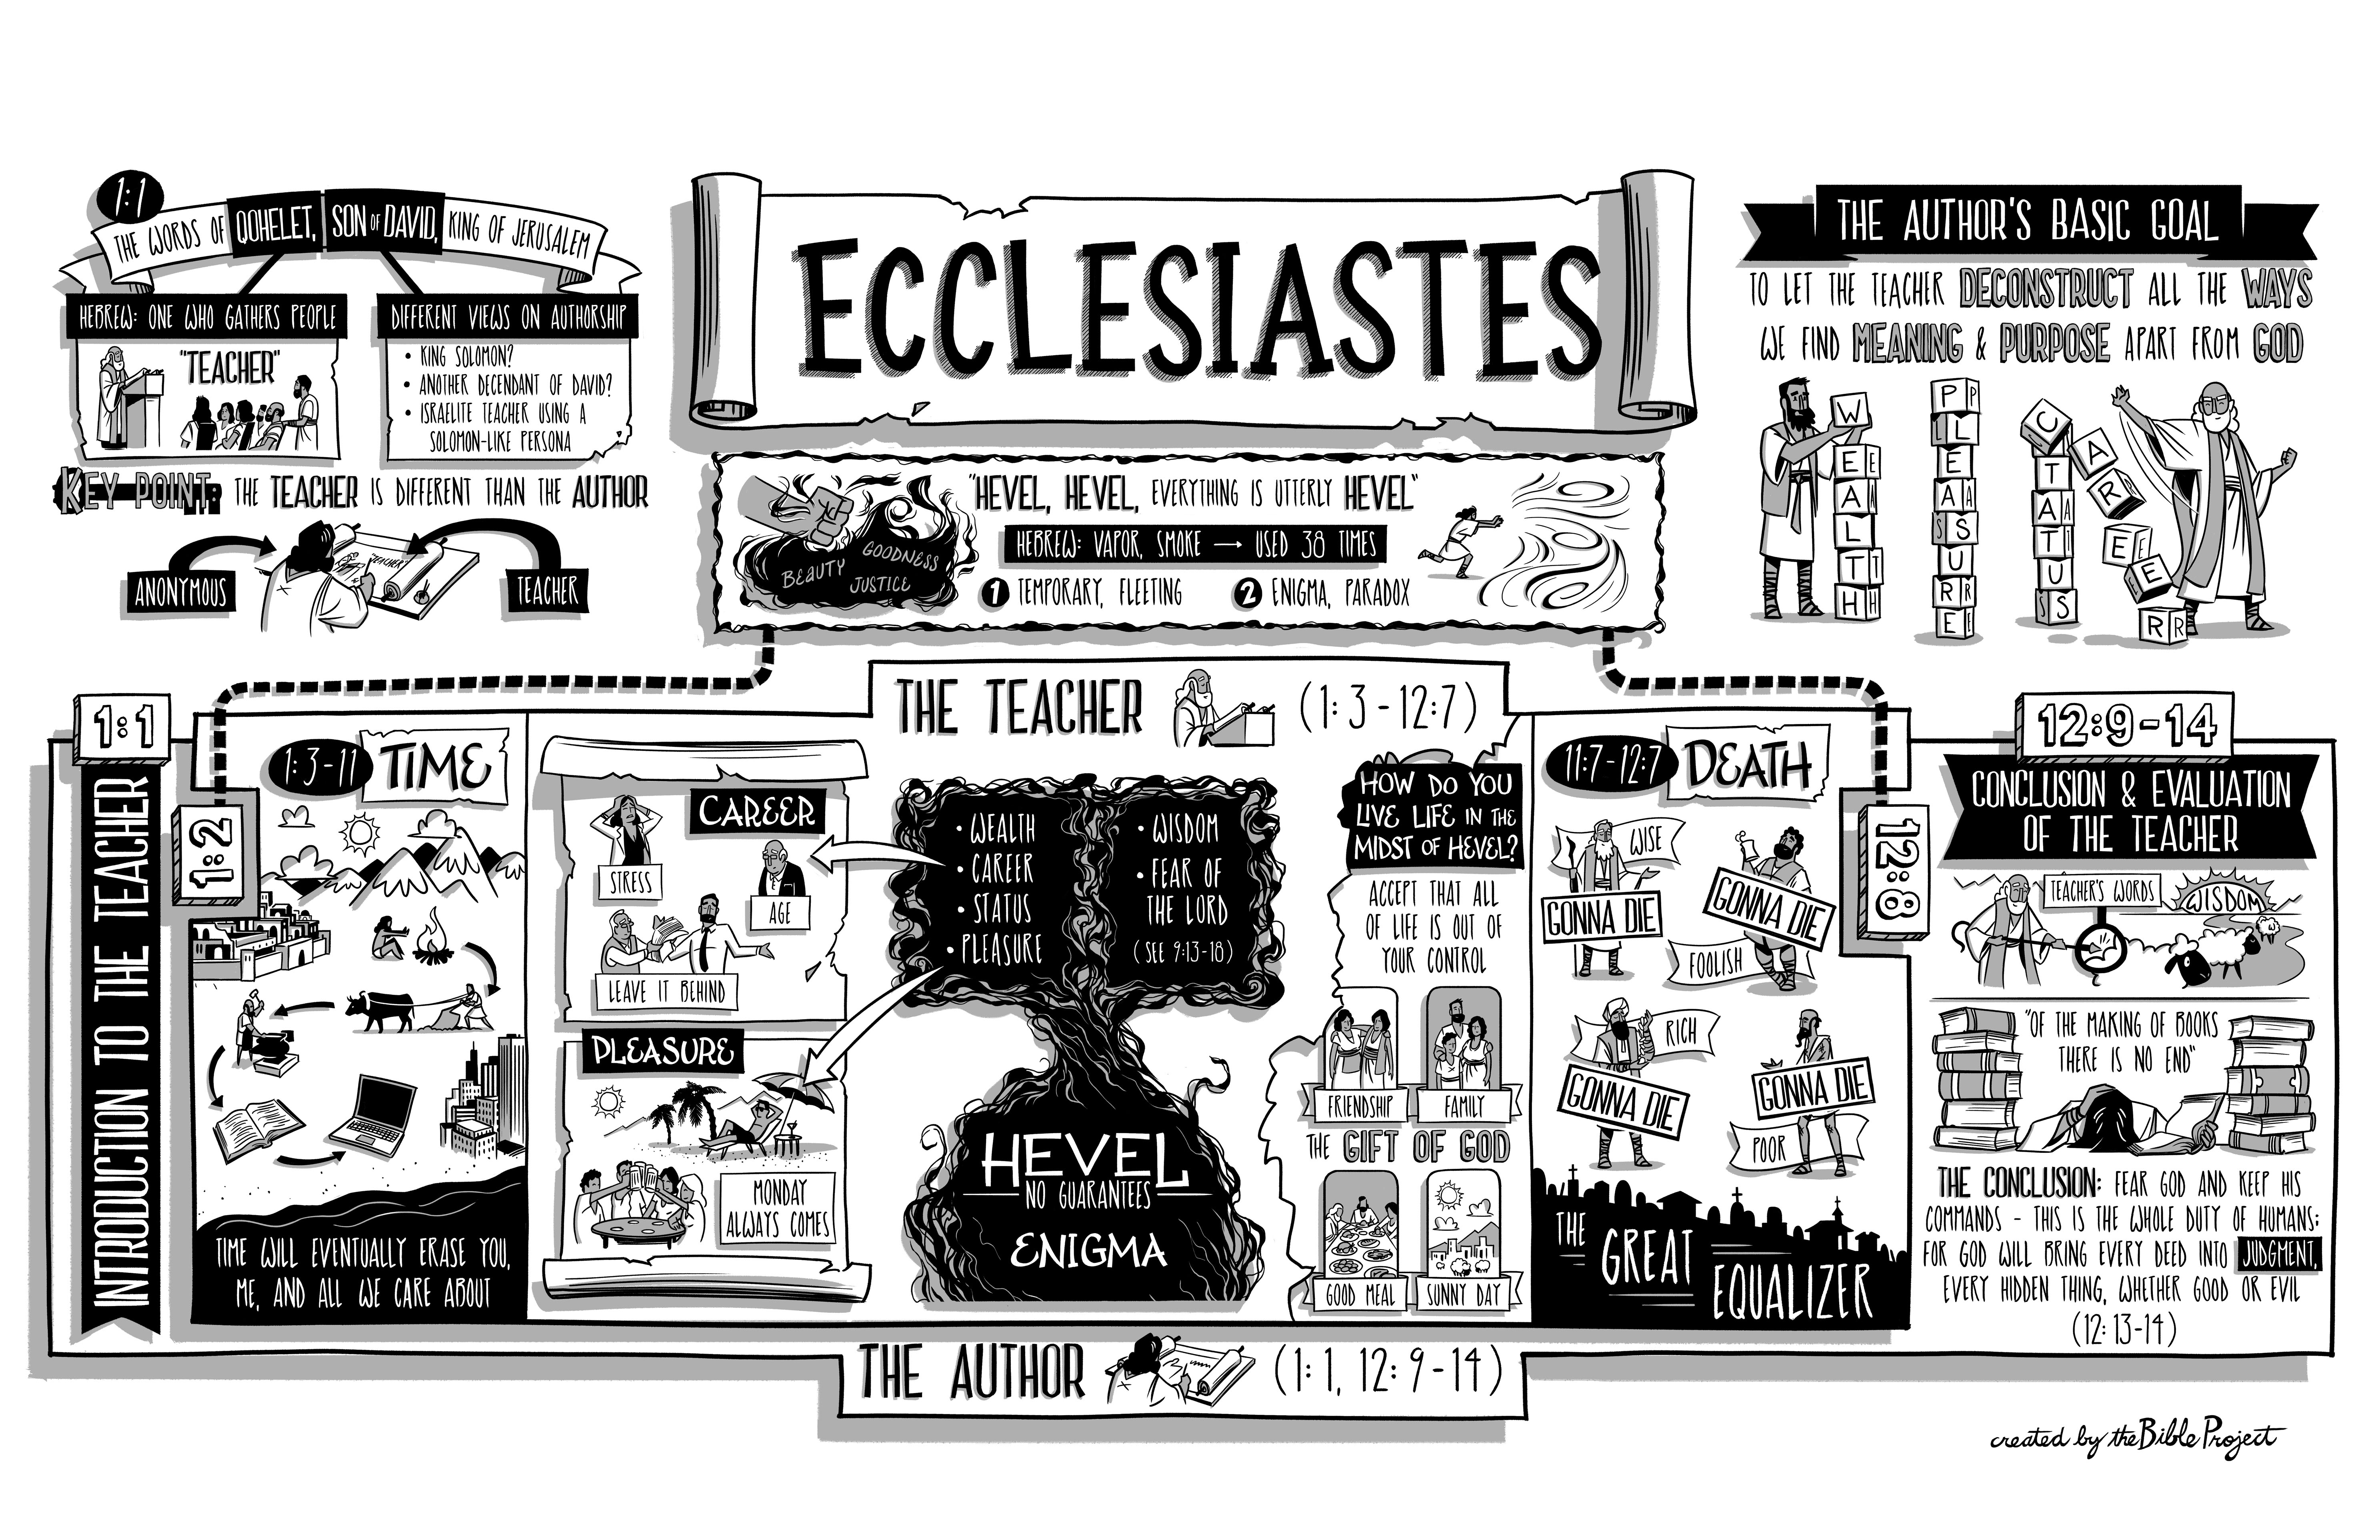 1:1
THE WORDS OF QOHELET, SON OF DAVID, KING OF JERUSALEM
HEBREW: ONE WHO GATHERS PEOPLE
"TEACHER"
DIFFERENT VIEWS ON AUTHORSHIP
• KING SOLOMON?
• ANOTHER DECENDANT OF DAVID?
• ISRAELITE TEACHER USING A
SOLOMON-LIKE PERSONA
KEY POINT: THE TEACHER IS DIFFERENT THAN THE AUTHOR
ANONYMOUS
"TEACHER"
TEACHER
ECCLESIASTES
"HEVEL, HEVEL, EVERYTHING IS UTTERLY HEVEL"
HEBREW: VAPOR, SMOKE → USED 38 TIMES
1 TEMPORARY, FLEETING
2 ENIGMA, PARADOX
BEAUTY
GOODNESS
JUSTICE
THE AUTHOR'S BASIC GOAL
TO LET THE TEACHER DECONSTRUCT ALL THE WAYS
WE FIND MEANING & PURPOSE APART FROM GOD
WEALTH
PLEASURE
STATUS
CAREER
THE TEACHER (1:3-12:7)
1:1
INTRODUCTION TO THE TEACHER
1:2
1:3-11 TIME
TIME WILL EVENTUALLY ERASE YOU,
ME, AND ALL WE CARE ABOUT
CAREER
STRESS
AGE
LEAVE IT BEHIND
PLEASURE
MONDAY
ALWAYS COMES
• WEALTH
• CAREER
• STATUS
• PLEASURE
• WISDOM
• FEAR OF
THE LORD
(SEE 9:13-18)
HEVEL
NO GUARANTEES
ENIGMA
HOW DO YOU
LIVE LIFE IN THE
MIDST OF HEVEL?
ACCEPT THAT ALL
OF LIFE IS OUT OF
YOUR CONTROL
FRIENDSHIP
FAMILY
THE GIFT OF GOD
GOOD MEAL
SUNNY DAY
11:7-12:7 DEATH
WISE
GONNA DIE
GONNA DIE
FOOLISH
RICH
GONNA DIE
GONNA DIE
POOR
THE
GREAT
EQUALIZER
12:8
12:9-14
CONCLUSION & EVALUATION
OF THE TEACHER
TEACHER'S WORDS
WISDOM
"OF THE MAKING OF BOOKS
THERE IS NO END"
THE CONCLUSION: FEAR GOD AND KEEP HIS
COMMANDS - THIS IS THE WHOLE DUTY OF HUMANS;
FOR GOD WILL BRING EVERY DEED INTO JUDGMENT,
EVERY HIDDEN THING, WHETHER GOOD OR EVIL
(12:13-14)
THE AUTHOR (1:1, 12:9-14)
created by the Bible Project